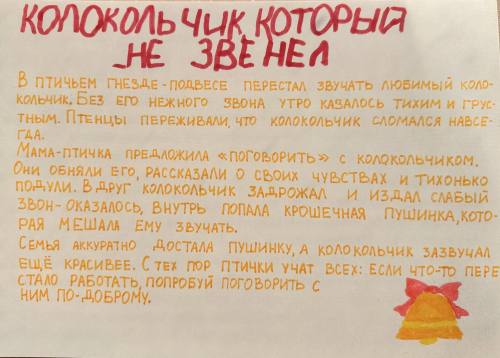 КОЛОКОЛЬЧИК, КОТОРЫЙ
НЕ ЗВЕНЕЛ
В ПТИЧЬЕМ ГНЕЗДЕ-ПОДВЕСЕ ПЕРЕСТАЛ ЗВУЧАТЬ ЛЮБИМЫЙ КОЛО-
КОЛЬЧИК. БЕЗ ЕГО НЕЖНОГО ЗВОНА УТРО КАЗАЛОСЬ ТИХИМ И ГРУС-
ТНЫМ. ПТЕНЦЫ ПЕРЕЖИВАЛИ, ЧТО КОЛОКОЛЬЧИК СЛОМАЛСЯ НАВСЕ-
ГДА.
МАМА-ПТИЧКА ПРЕДЛОЖИЛА «ПОГОВОРИТЬ» С КОЛОКОЛЬЧИКОМ.
ОНИ ОБНЯЛИ ЕГО, РАССКАЗАЛИ О СВОИХ ЧУВСТВАХ И ТИХОНЬКО
ПОДУЛИ. ВДРУГ КОЛОКОЛЬЧИК ЗАДРОЖАЛ И ИЗДАЛ СЛАБЫЙ
ЗВОН-ОКАЗАЛОСЬ, ВНУТРЬ ПОПАЛА КРОШЕЧНАЯ ПУШИНКА, КОТО-
РАЯ МЕШАЛА ЕМУ ЗВУЧАТЬ.
СЕМЬЯ АККУРАТНО ДОСТАЛА ПУШИНКУ, А КОЛОКОЛЬЧИК ЗАЗВУЧАЛ
ЕЩЁ КРАСИВЕЕ. С ТЕХ ПОР ПТИЧКИ УЧАТ ВСЕХ: ЕСЛИ ЧТО-ТО ПЕРЕ
СТАЛО РАБОТАТЬ, ПОПРОБУЙ ПОГОВОРИТЬ С
НИМ ПО-ДОБРОМУ.